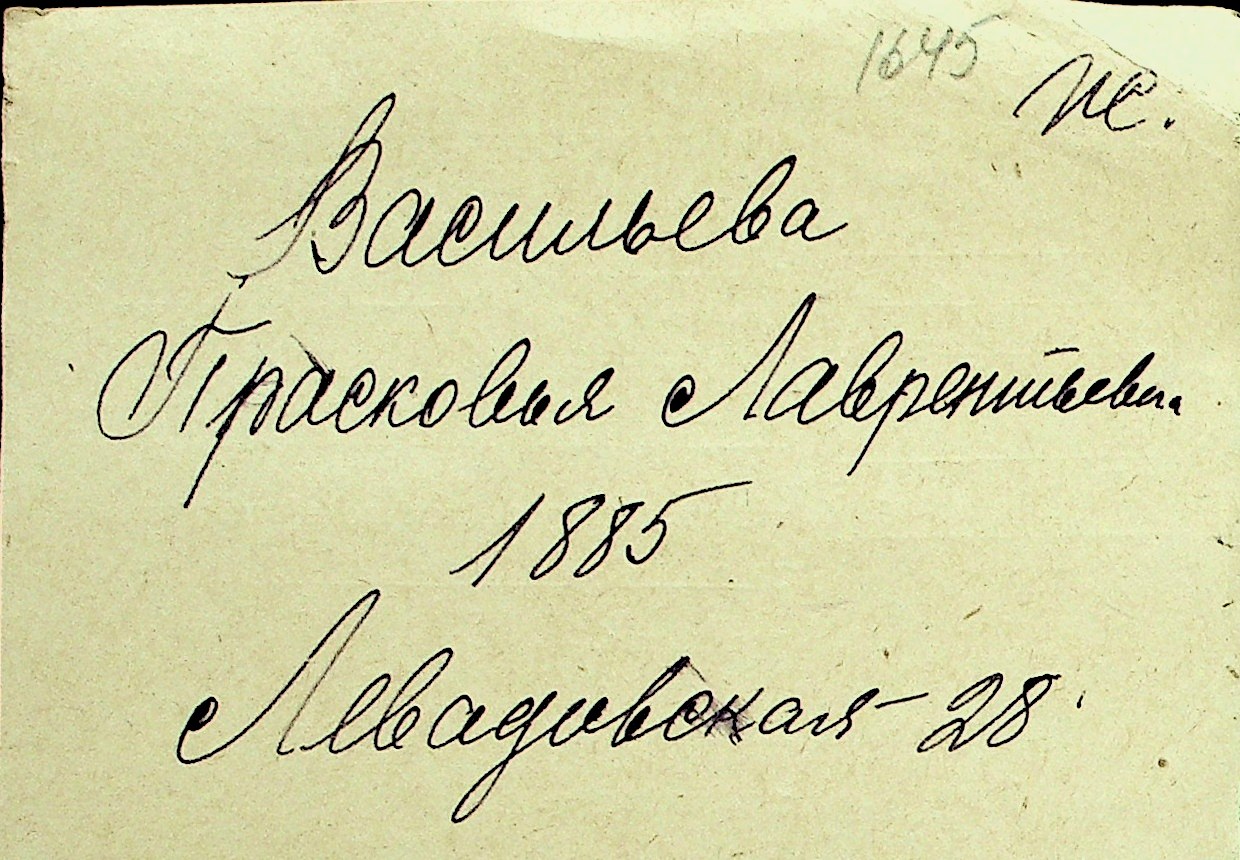 1645
ж.
Васильева
Прасковья Лаврентьевна
1885
Левадовская 28